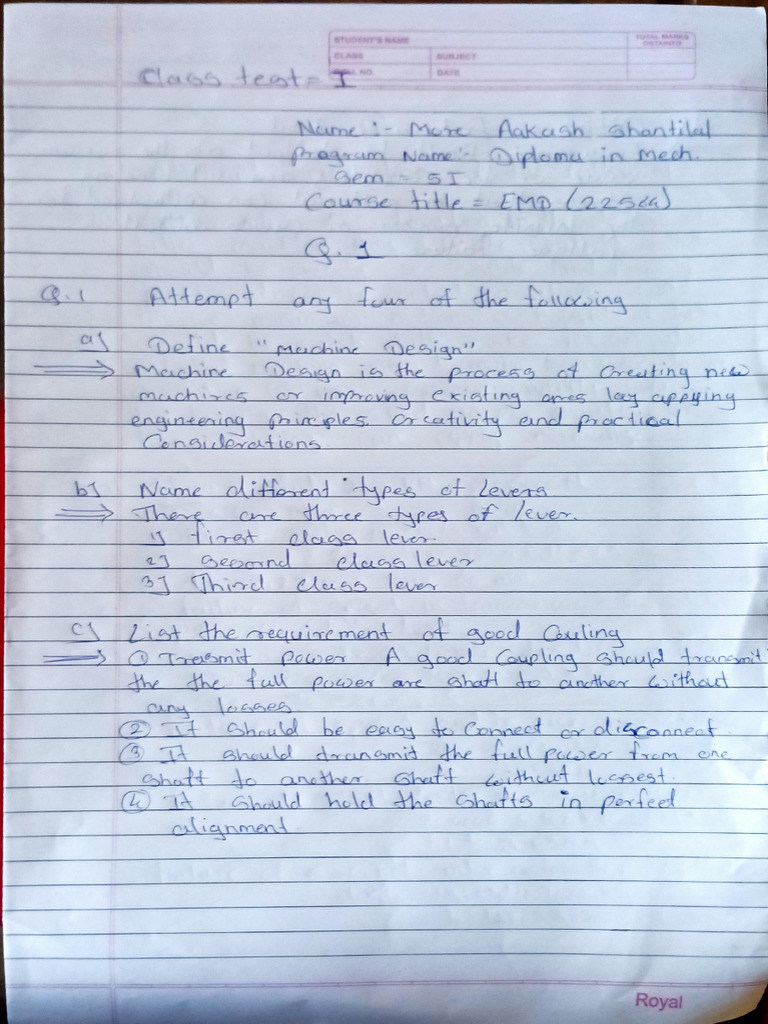 STUDENT'S NAME
TOTAL MARKS OBTAINED
CLASS
SUBJECT
ROLL NO.
DATE
Class test = I
Name :- More Aakash Shantilal
Program Name :- Diploma in Mech.
Sem = 5I
Course title = EMD (22564)
Q. 1
Q.1 Attempt any four of the following
a] Define "Machine Design"
Machine Design is the process of Creating new
machines or improving existing ones by applying
engineering principles. Creativity and practical
Considerations
b] Name different types of Levers
There are three types of lever.
1] first class lever.
2] Second class lever
3] Third class lever
c] List the requirement of good Couling
① Transmit power A good Coupling should transmit
the the full power are shaft to another without
any losses
② It should be easy to connect or disconnect
③ It should transmit the full power from one
shaft to another shaft without lossest.
④ It should hold the shafts in perfect
alignment
Royal